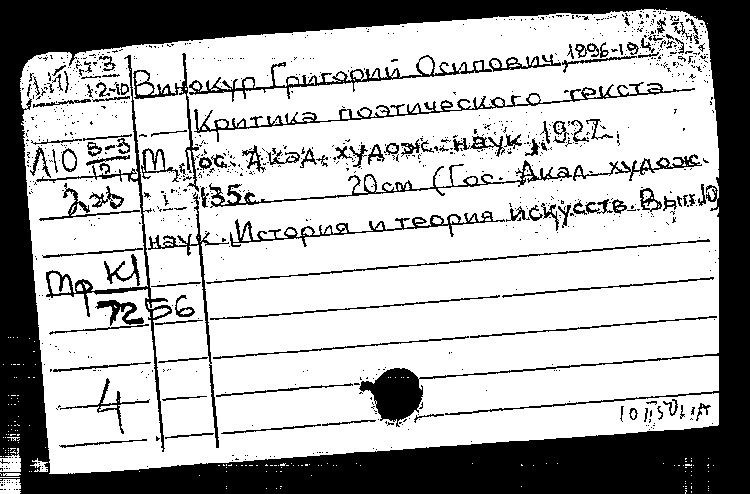 Л10 Т-3
12-10 Винокур, Григорий Осипович, 1896-194
Критика поэтического текста.
Л10 В-3
12 М., Гос. Акад. худож. наук, 1927.
2 экз 135с. 20cm (Гос. Акад. худож.
наук. История и теория искусств. Вып.10)
Мф К1
7256
4